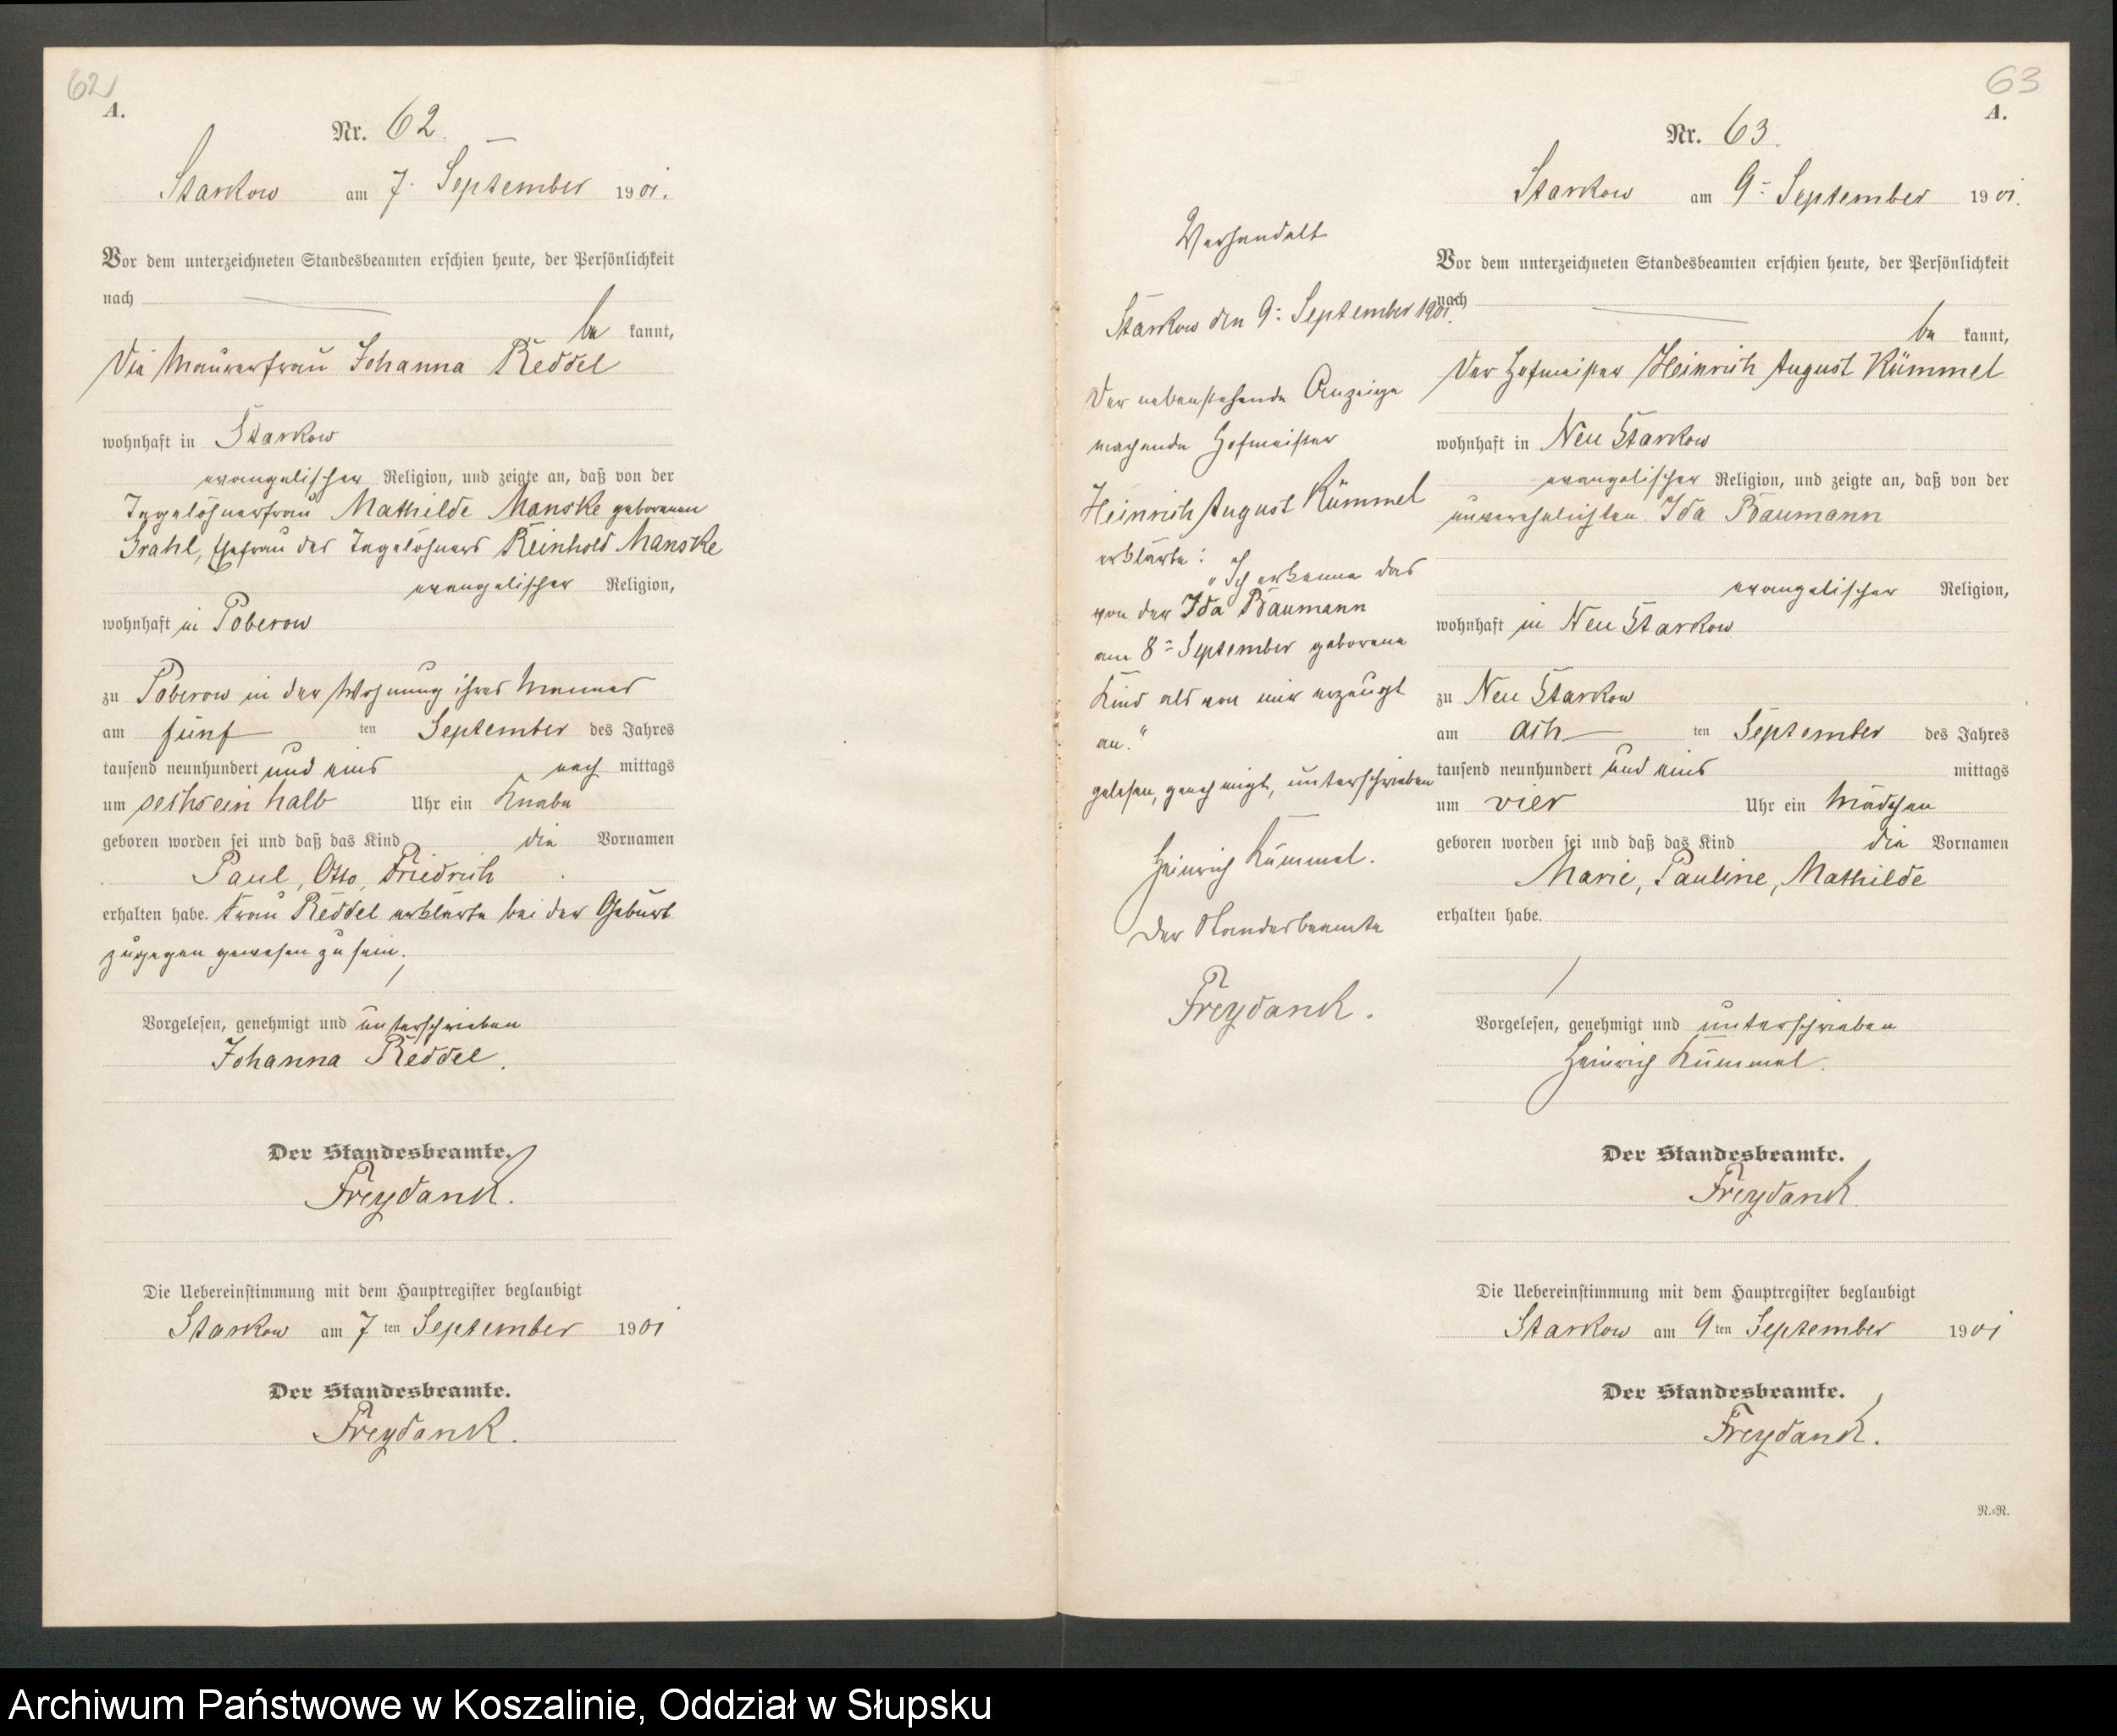 62
A.
Nr. 62.
Starkow am 7. September 1901.
Vor dem unterzeichneten Standesbeamten erschien heute, der Persönlichkeit
nach
be kannt,
Die Maurerfrau Johanna Reddel
wohnhaft in Starkow
evangelischer Religion, und zeigte an, daß von der
Tagelöhnerfrau Mathilde Manske geborenen
Grahl, Ehefrau des Tagelöhners Reinhold Manske
evangelischer Religion,
wohnhaft in Poberow
zu Poberow in der Wohnung ihres Mannes
am fünf ten September des Jahres
tausend neunhundert und eins nach mittags
um sechseinhalb Uhr ein Knabe
geboren worden sei und daß das Kind die Vornamen
Paul, Otto, Friedrich
erhalten habe. Frau Reddel erklärte bei der Geburt
zugegen gewesen zu sein.
Vorgelesen, genehmigt und unterschrieben
Johanna Reddel.
Der Standesbeamte.
Freydank.
Die Uebereinstimmung mit dem Hauptregister beglaubigt
Starkow am 7 ten September 1901
Der Standesbeamte.
Freydank.
63
A.
Nr. 63.
Starkow am 9. September 1901.
Vor dem unterzeichneten Standesbeamten erschien heute, der Persönlichkeit
nach
be kannt,
Der Hofmeister Heinrich August Kümmel
wohnhaft in Neu Starkow
evangelischer Religion, und zeigte an, daß von der
unverehelichten Ida Baumann
evangelischer Religion,
wohnhaft in Neu Starkow
zu Neu Starkow
am ach ten September des Jahres
tausend neunhundert und eins mittags
um vier Uhr ein Mädchen
geboren worden sei und daß das Kind die Vornamen
Marie, Pauline, Mathilde
erhalten habe.
Vorgelesen, genehmigt und unterschrieben
Heinrich Kümmel.
Der Standesbeamte.
Freydank.
Die Uebereinstimmung mit dem Hauptregister beglaubigt
Starkow am 9 ten September 1901
Der Standesbeamte.
Freydank.
R.=R.
Verhandelt
Starkow den 9. September 1901.
Der nebenstehende Anzeige
machende Hofmeister
Heinrich August Kümmel
erklärte:
„Ich erkenne das
von der Ida Baumann
am 8. September geborene
Kind als von mir erzeugt
an."
gelesen, genehmigt, unterschrieben
Heinrich Kümmel.
Der Standesbeamte
Freydank.
Archiwum Państwowe w Koszalinie, Oddział w Słupsku